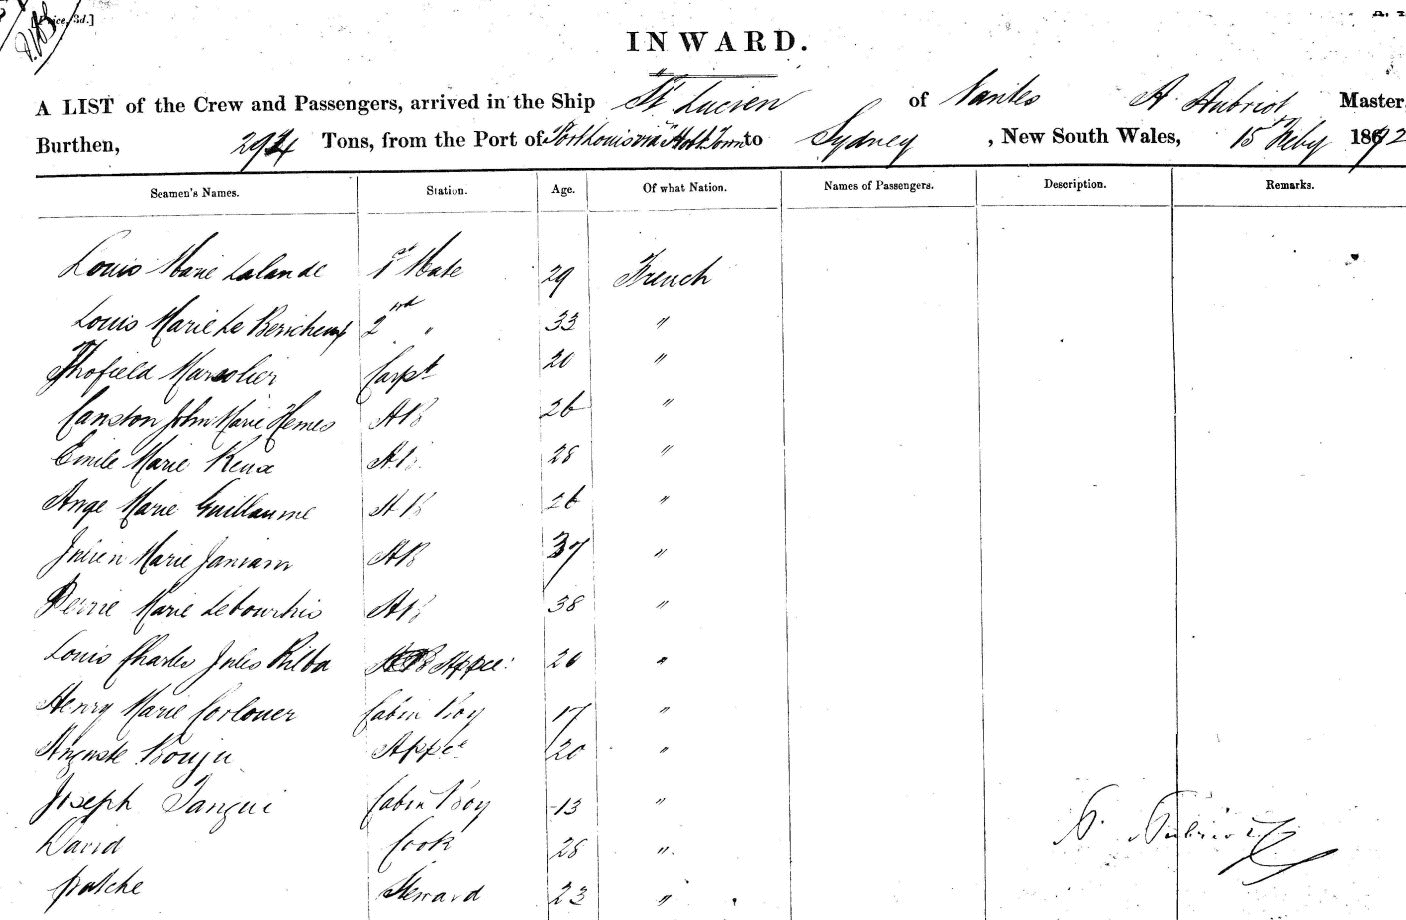 ice, 3d.]
INWARD.
A LIST of the Crew and Passengers, arrived in the Ship St. Lucien of Nantes A Aubriot Master,
Burthen, 294 Tons, from the Port of Port Louis via Hob. Town to Sydney , New South Wales, 15 Feby 1872
Seamen's Names. Station. Age. Of what Nation. Names of Passengers. Description. Remarks.
Louis Marie Lalande 1st Mate 29 French
Louis Marie Le 2nd " 33 "
Carpt 20 "
John Marie AB 26 "
Emile Marie AB 28 "
Ange Marie Guillaume AB 26 "
Julien Marie AB 37 "
Marie Lebourhis AB 38 "
Louis Charles Jules Appce 20 "
Henry Marie Corlouer Cabin Boy 17 "
Auguste Bouju Appce 20 "
Joseph Tangui Cabin Boy 13 "
David Cook 28 "
Steward 23 "
A. Aubriot